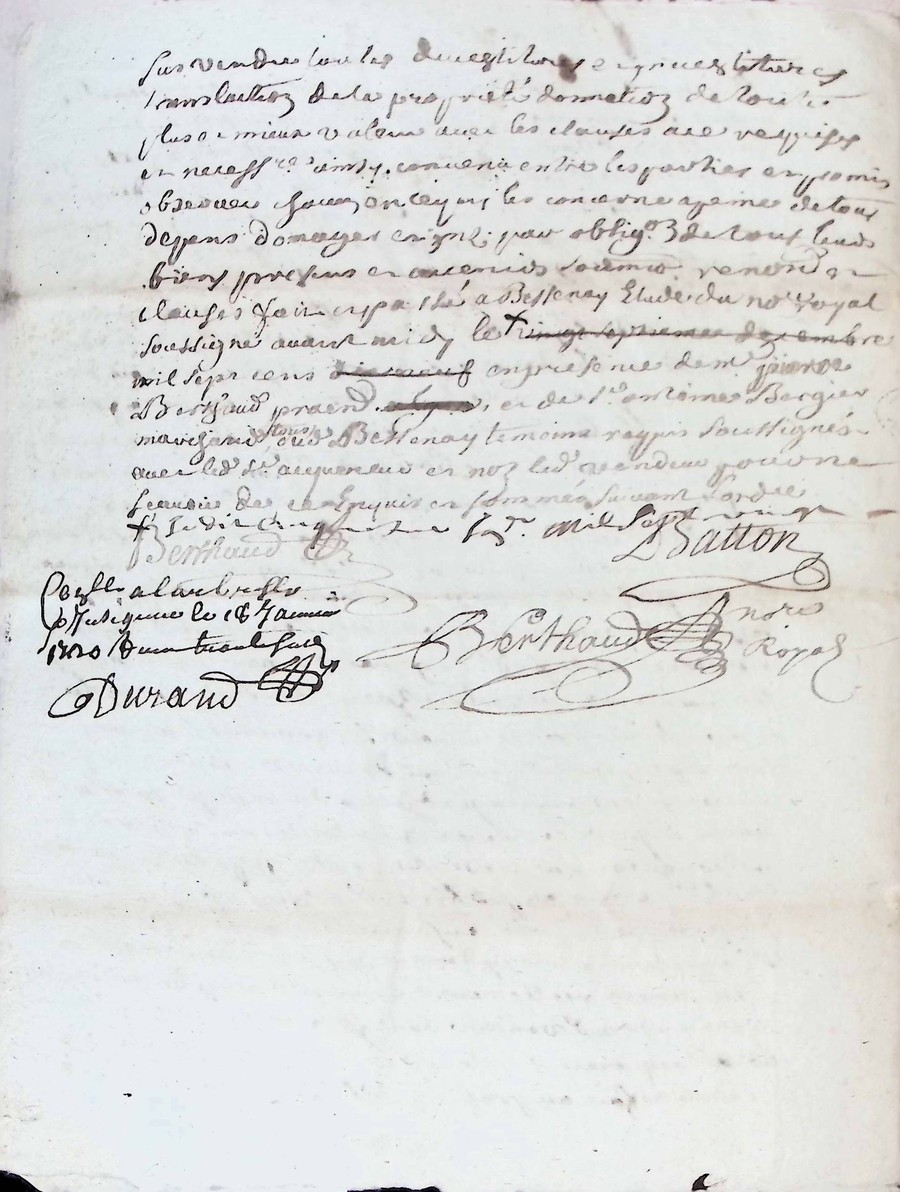 sus vendu toutes devestitures et investitures
translation de la proprieté donnation de toutes
plus et mieux value avec les clauses a ce requises
et necess.res ainsy convenu entre les parties et promis
observer chacun en ce qui les concerne a peine de tous
depens domages par oblig.on de tous leurs
biens presens et avenirs soumis renond. et
clauses fait et passé a Bessenay Etude du no.re royal
soussigné avant midy le + vingt septieme decembre
mil sept cens dix neuf en presence de m.e
Berthaud et de s.r antoine Bergier
marchand tous dud. Bessenay temoins requis soussignés
avec led. s.r acquereur et non led. vendeur pour ne
scavoir de ce enquis et sommé suivant l'ordce
+ Le dix mil sept vingt
Berthaud Batton
Con.llé a larbresle
le 18 Janvier
1720
Berthaud no.re
Royal
Durand